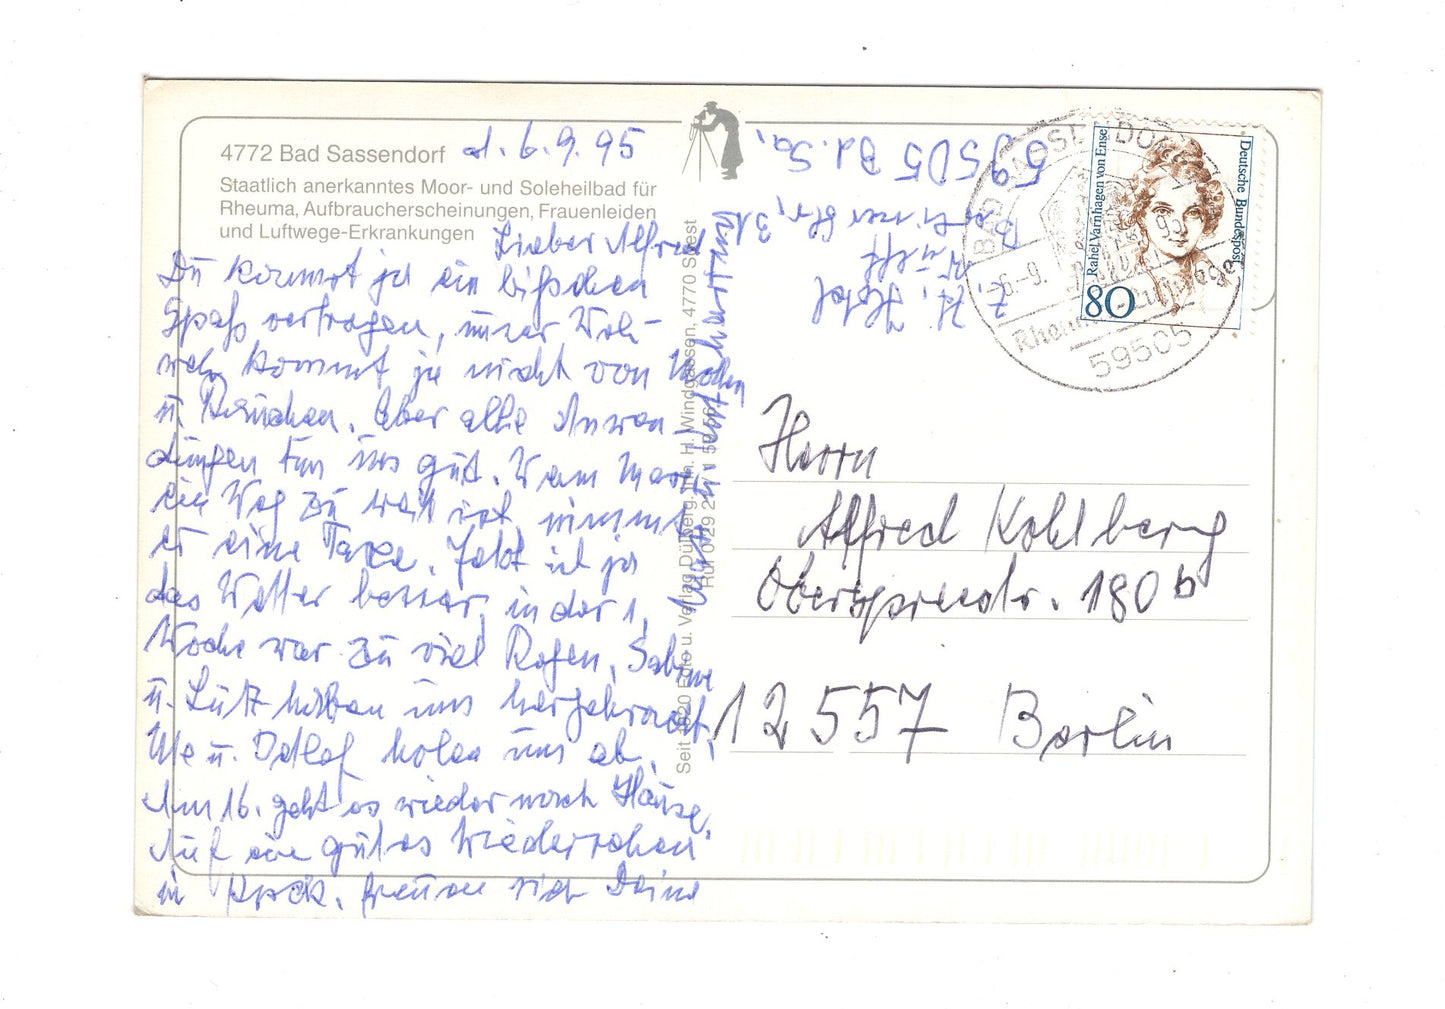 4772 Bad Sassendorf d. 6.9.95
Staatlich anerkanntes Moor- und Soleheilbad für
Rheuma, Aufbraucherscheinungen, Frauenleiden
und Luftwege-Erkrankungen
Lieber Alfred
Du kannst ja ein bißchen
Spaß vertragen, unser Weh-
weh kommt ja nicht von
u. Rauchen. Aber alle Anwen-
dungen tun uns gut. Wem
ein Weg zu weit ist, nimmt
er eine Taxe. Jetzt ist ja
das Wetter besser, in der 1.
Woche war zu viel Regen. Sabine
u. Lutz haben uns hergebracht,
Ute u. Detlef holen uns ab.
Am 16. geht es wieder nach Hause.
Auf ein gutes Wiedersehen
in freuen sich Deine
Seit 1920 Foto u. Verlag Dülberg, Inh. H. Windgassen, 4770 Soest
Ruf 0 29 21 /
z. Zt. Hotel
59505 Bd. Sa.
BAD SASSENDORF
-6.-9.95
Rheuma-
59505
Deutsche Bundespost
Rahel Varnhagen von Ense
80
Herrn
Alfred Kohlberg
Oberspreestr. 180 b
12557 Berlin